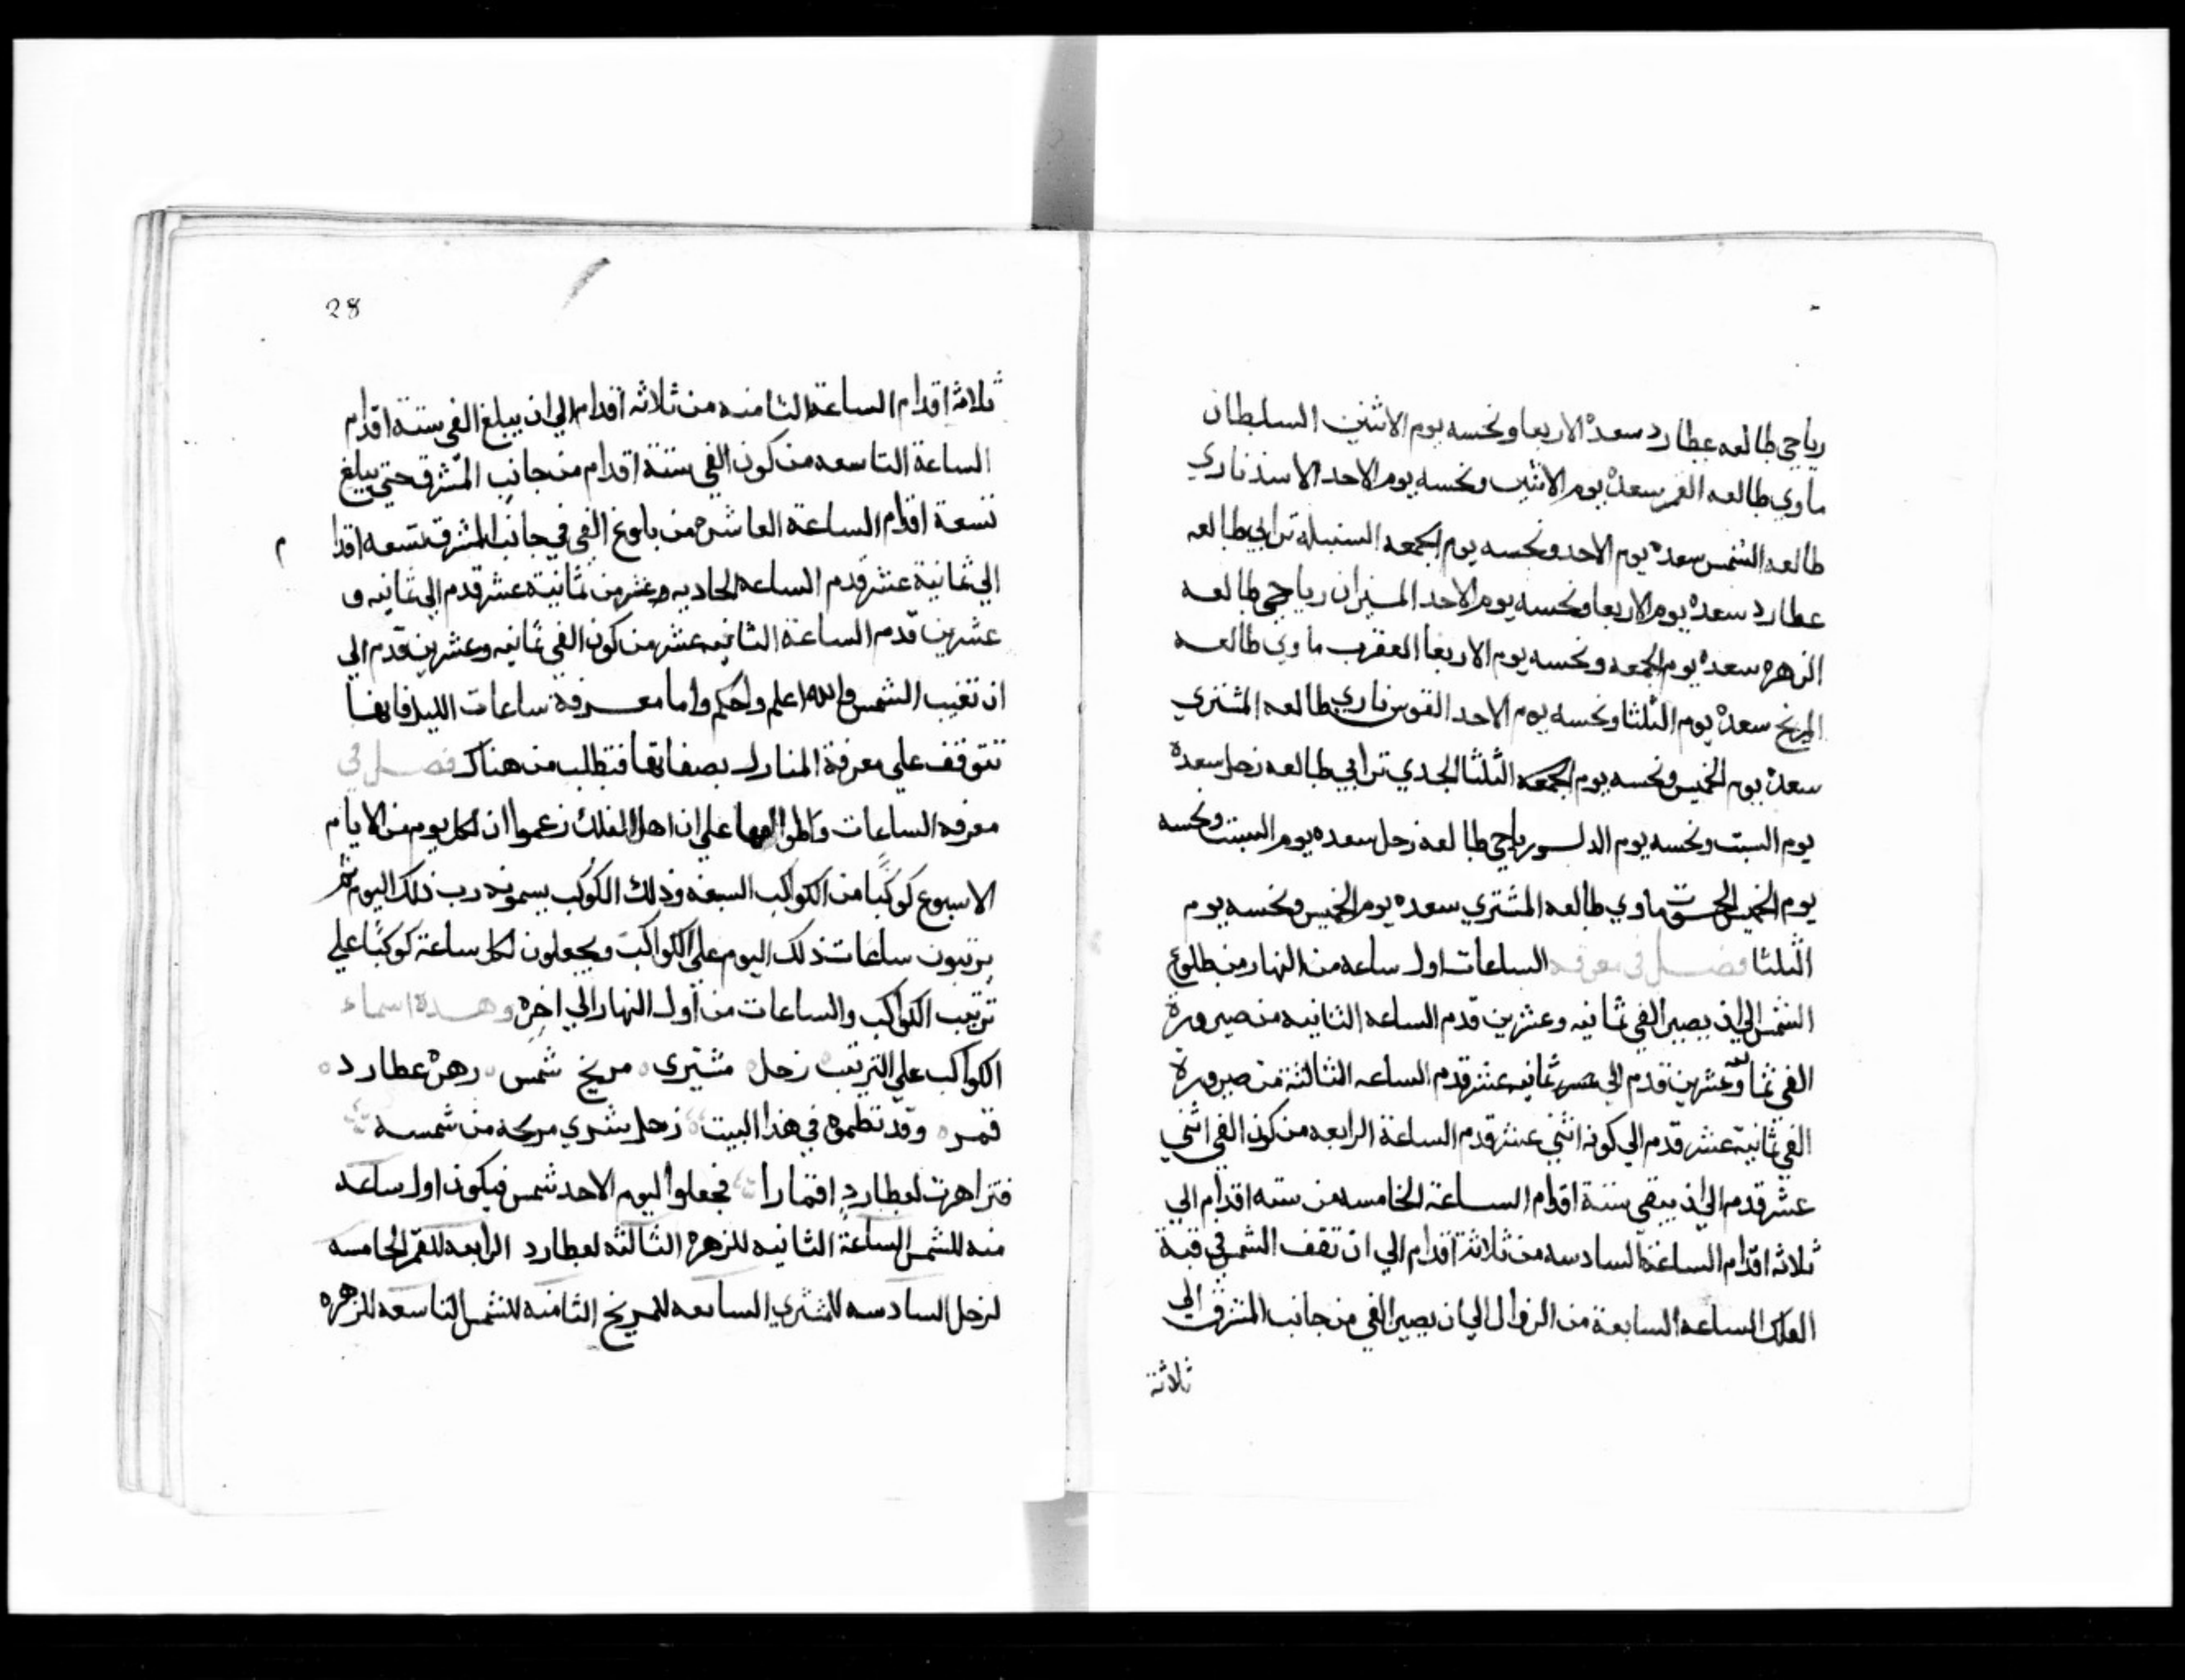 رياحي طالعه عطارد سعده الاربعا ونحسه يوم الاثنين السلطان
ماوي طالعه القمر سعده يوم الاثنين ونحسه يوم الاحد الاسد ناري
طالعه الشمس سعده يوم الاحد ونحسه يوم الجمعه السنبلة ترابي طالعه
عطارد سعده يوم الاربعا ونحسه يوم الاحد الميزان رياحي طالعه
الزهره سعده يوم الجمعه ونحسه يوم الاربعا العقرب ماوي طالعه
المريخ سعده يوم الثلثا ونحسه يوم الاحد القوس ناري طالعه المشتري
سعده يوم الخميس ونحسه يوم الجمعه الثلثا الجدي ترابي طالعه زحل سعده
يوم السبت ونحسه يوم الدلو رياحي طالعه زحل سعده يوم السبت ونحسه
يوم الخميس الحوت ماوي طالعه المشتري سعده يوم الخميس ونحسه يوم
الثلثا فصل في معرفه الساعات اول ساعه من النهار من طلوع
الشمس الي ان يصير الفي ثمانيه وعشرين قدم الساعه الثانيه من صيرورة
الفي ثما وعشرين قدم الي ثمانيه عشر قدم الساعه الثالثة من صيرورة
الفي ثمانية عشر قدم الي كونه اثني عشر قدم الساعة الرابعه من كون الفي اثني
عشر قدم الي ان يبقي ستة اقدام الساعة الخامسه من سته اقدام الي
ثلاثه اقدام الساعة السادسه من ثلاثة اقدام الي ان تقف الشمس في قبة
الفلك الساعه السابعة من الزوال الي ان يصير الفي من جانب المشرق الي
ثلاثة
28
ثلاثة اقدام الساعة الثامنه من ثلاثه اقدام الي ان يبلغ الفي ستة اقدام
الساعة التاسعه من كون الفي ستة اقدام من جانب المشرق حتي يبلغ
تسعة اقدام الساعة العاشره من بلوغ الفي في جانب المشرق تسعه اقدا م
الي ثمانية عشر قدم الساعه الحاديه وعشر من ثمانية عشر قدم الي ثمانيه و
عشرين قدم الساعة الثانيه عشر من كون الفي ثمانيه وعشرين قدم الي
ان تغيب الشمس والله اعلم واحكم واما معرفة ساعات الليل فانها
تتوقف علي معرفة المنازل بصفاتها فتطلب من هناك فصل في
معرفه الساعات علي ان اهل الفلك زعموا ان لكل يوم من الايام
الاسبوع كوكبا من الكواكب السبعه وذلك الكوكب يسمونه رب ذلك اليوم ثم
يرتبون ساعات ذلك اليوم علي الكواكب ويجعلون لكل ساعة كوكبا علي
ترتيب الكواكب والساعات من اول النهار الي اخره وهذه اسماء
الكواكب علي الترتيب زحل مشتري مريخ شمس زهرة عطارد
قمر وقد نظموه في هذا البيت زحل شري مريخه من شمسه
فتزاهرت لعطارد اقمارا فجعلوا ليوم الاحد شمس فيكون اول ساعه
منه للشمس الساعة الثانيه للزهره الثالثه لعطارد الرابعه للقمر الخامسه
لزحل السادسه للمشتري السابعه للمريخ الثامنه للشمس التاسعه للزهره